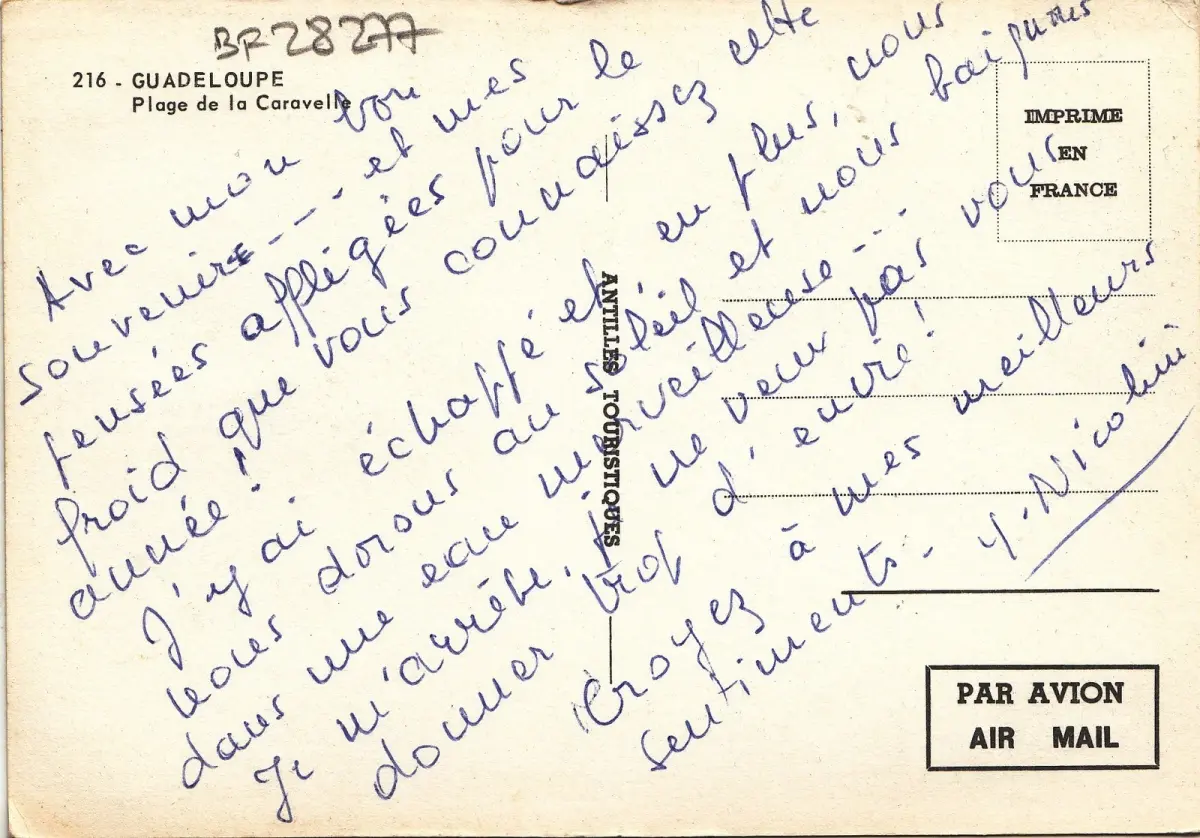 BF 28277
216 - GUADELOUPE
Plage de la Caravelle
Avec mon bon
souvenir - - - et mes
pensées affligées pour le
froid que vous connaissez cette
année !
J'y ai échappé et, en plus, nous
nous dorons au soleil et nous baignons
dans une eau merveilleuse - . .
Je m'arrête, ne veux pas vous
donner trop d'envie !
Croyez à mes meilleurs
sentiments - Y. Nicolini
ANTILLES TOURISTIQUES
IMPRIME
EN
FRANCE
PAR AVION
AIR MAIL